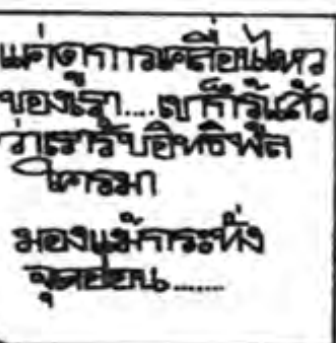 แค่ดูการเคลื่อนไหว
ของเรา....เขาก็รู้แล้ว
ว่าเรารับอิทธิพล
ใครมา
มองแม้กระทั่ง
จุดอ่อน.......